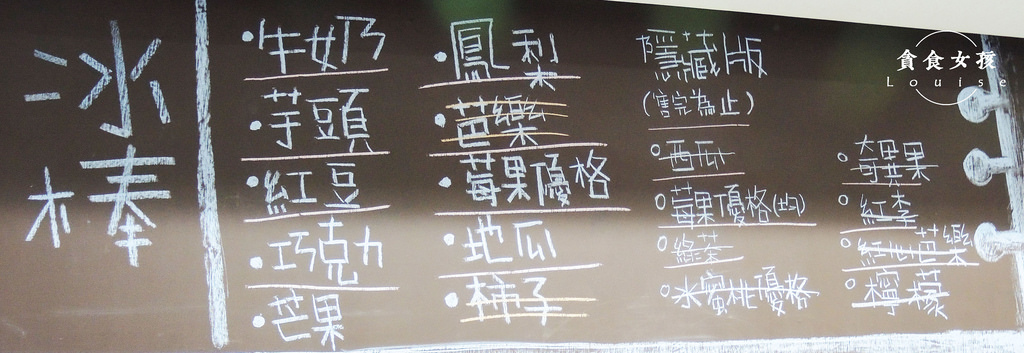 冰棒
牛奶乃
芋頭
紅豆
巧克力
芒果
鳳梨
芭樂
莓果優格
地瓜
柿子
隱藏版
(售完為止)
西瓜
莓果優格(塊)
綠茶
水蜜桃優格
百香果
紅李
紅心芭樂
檸檬
貪食女孩
Louise